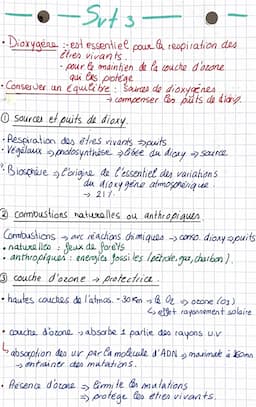 Svt 3
• Dioxygène :- est essentiel pour la respiration des
êtres vivants.
- pour le maintien de la couche d'ozone
qui les protège
• Conserver un équilibre : Sources de dioxygènes
→ compenser les puits de dioxy.
① sources et puits de dioxy.
• Respiration des êtres vivants → puits
• Végétaux → photosynthèse → libère du dioxy → source
• Biosphère → l'origine de l'essentiel des variations
du dioxygène atmosphérique.
→ 21%.
② combustions naturelles ou anthropiques.
Combustions → arc réactions chimiques → conso. dioxy → puits
• naturelles : feux de forêts
• anthropiques : énergies fossiles (pétrole, gaz, charbon).
③ couche d'ozone → protectrice.
• hautes couches de l'atmos. - 30km → le O2 → ozone (O3)
↳ effet rayonnement solaire
• couche d'ozone → absorbe 1 partie des rayons u.v
↳ absorption des uv par la molécule d'ADN → maximale à 260nm
→ entrainer des mutations.
• Présence d'ozone → limite les mutations
→ protège les êtres vivants.